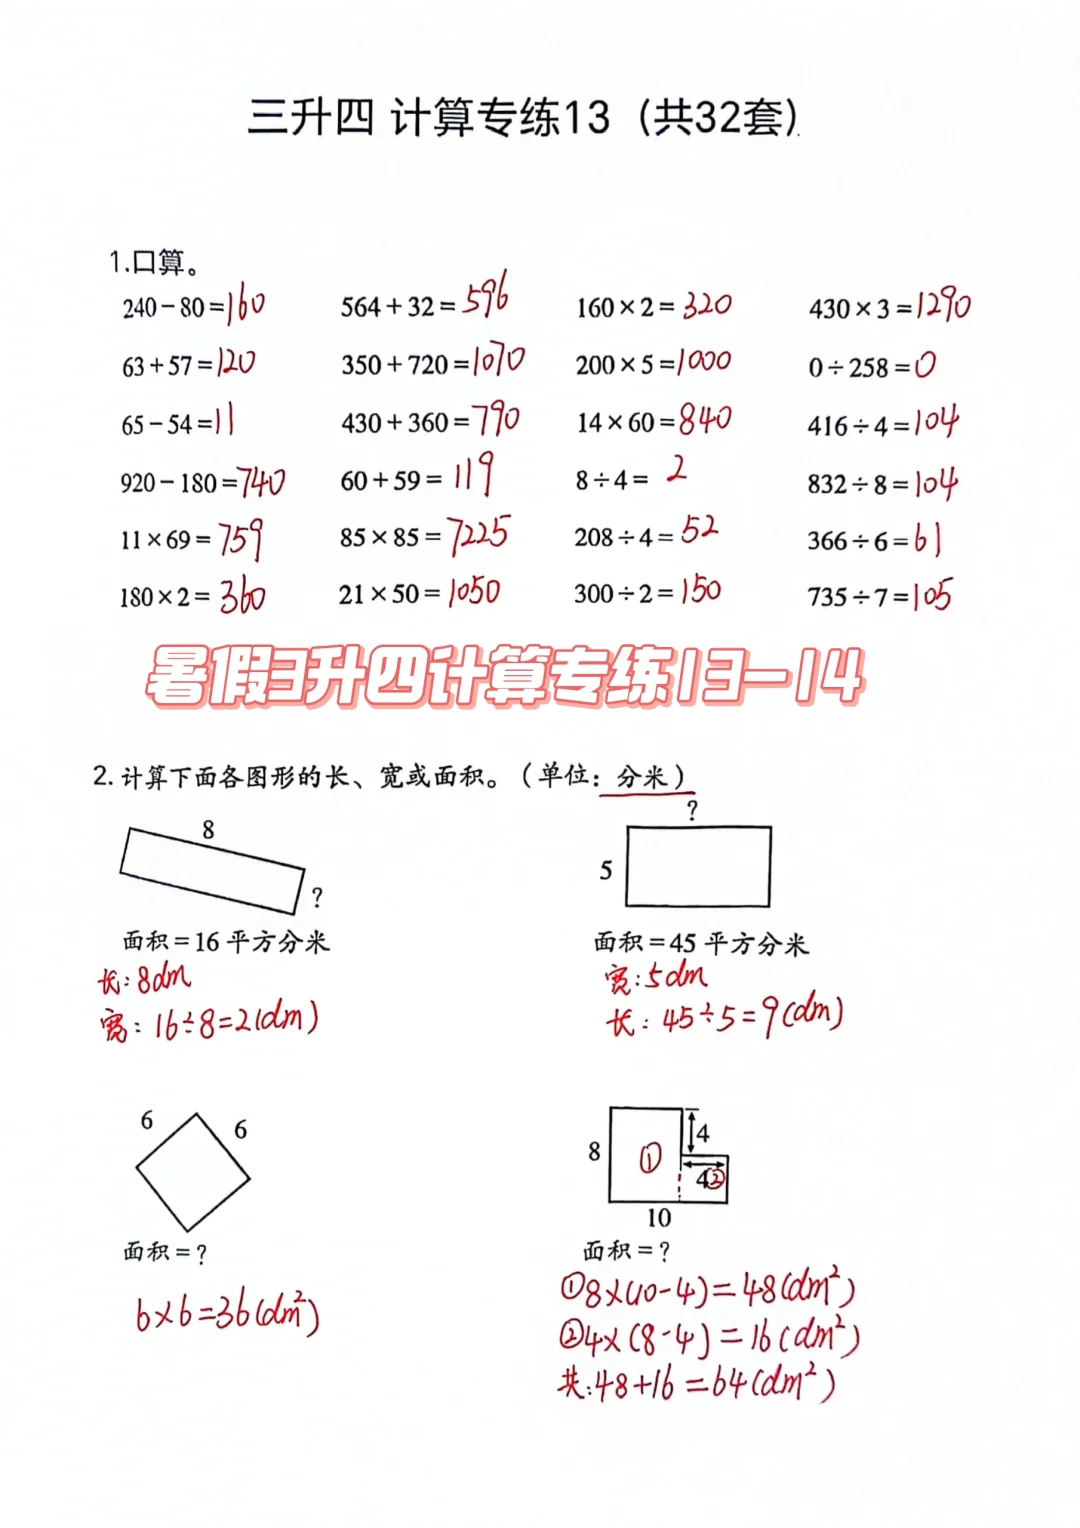 三升四 计算专练13（共32套）
1.口算。
240－80＝160 564＋32＝596 160×2＝320 430×3＝1290
63＋57＝120 350＋720＝1070 200×5＝1000 0÷258＝0
65－54＝11 430＋360＝790 14×60＝840 416÷4＝104
920－180＝740 60＋59＝119 8÷4＝2 832÷8＝104
11×69＝759 85×85＝7225 208÷4＝52 366÷6＝61
180×2＝360 21×50＝1050 300÷2＝150 735÷7＝105
暑假3升四计算专练13-14
2.计算下面各图形的长、宽或面积。（单位：分米）
8
?
?
5
面积＝16 平方分米
长：8dm
宽：16÷8＝2(dm)
面积＝45 平方分米
宽：5dm
长：45÷5＝9(dm)
6
6
面积＝?
6×6＝36(dm²)
8
①
4
4②
10
面积＝?
①8×(10-4)＝48(dm²)
②4×(8-4)＝16(dm²)
共：48+16＝64(dm²)